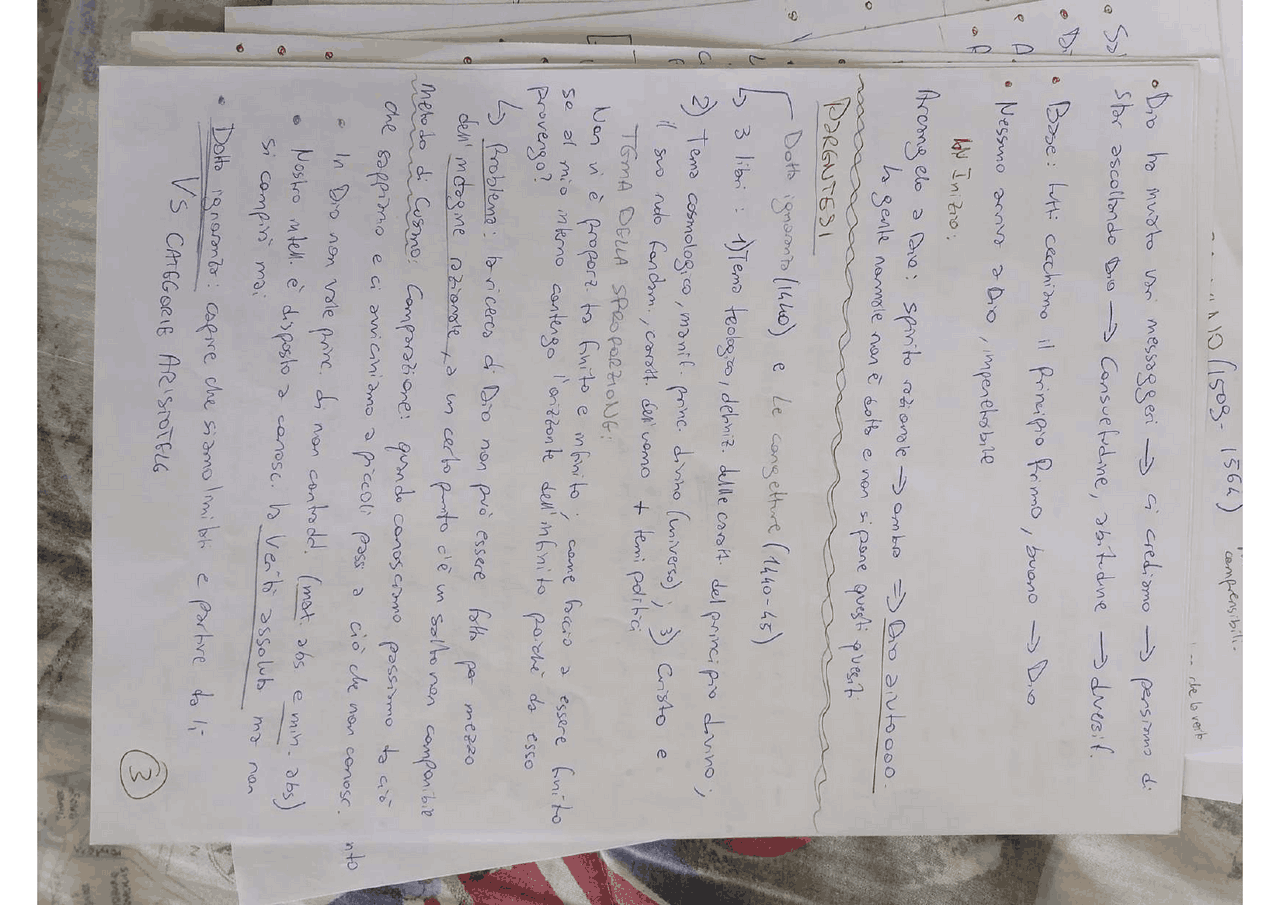 • Dio ha inviato vari messaggeri → ci crediamo → pensiamo di
star ascoltando Dio → Consuetudine, abitudine → diversif.
• Base: tutti cerchiamo il Principio Primo, buono → Dio
• Nessuno arriva a Dio, impenetrabile
In Inizio:
Arcangelo a Dio: spirito razionale → ombra ⇒ Dio aiutoooo
la gente normale non è dotta e non si pone questi quesiti
PARENTESI
Dotta ignoranza (1440) e Le congetture (1440-45)
↳ 3 libri: 1) Tema teologico, definiz. delle caratt. del principio divino;
2) Tema cosmologico, manif. princ. divino (universo); 3) Cristo e
il suo ruolo fondam., caratt. dell'uomo + temi politici
TEMA DELLA SPROPORZIONE:
Non vi è proporz. tra finito e infinito; come faccio a essere finito
se al mio interno contengo l'orizzonte dell'infinito poiché da esso
provengo?
↳ Problema: la ricerca di Dio non può essere fatta per mezzo
dell'indagine razionale, a un certo punto c'è un salto non compatibile
Metodo di Cusano: Comparazione: quando conosciamo passiamo da ciò
che sappiamo e ci avviciniamo a piccoli passi a ciò che non conosc.
• In Dio non vale princ. di non contradd. (mat. abs e min. abs)
• Nostro intell. è disposto a conosc. la verità assoluta ma non
si compirà mai
• Dotta ignoranza: capire che siamo limitati e partire da lì
VS CATEGORIE ARISTOTELE
3
10 (1509-
1564)
comprensibili
che la verità
nto